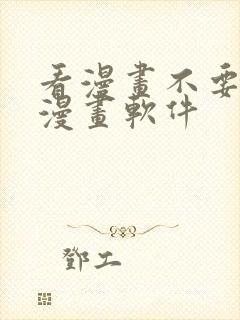 看漫畫不要
漫畫軟件
鄧工